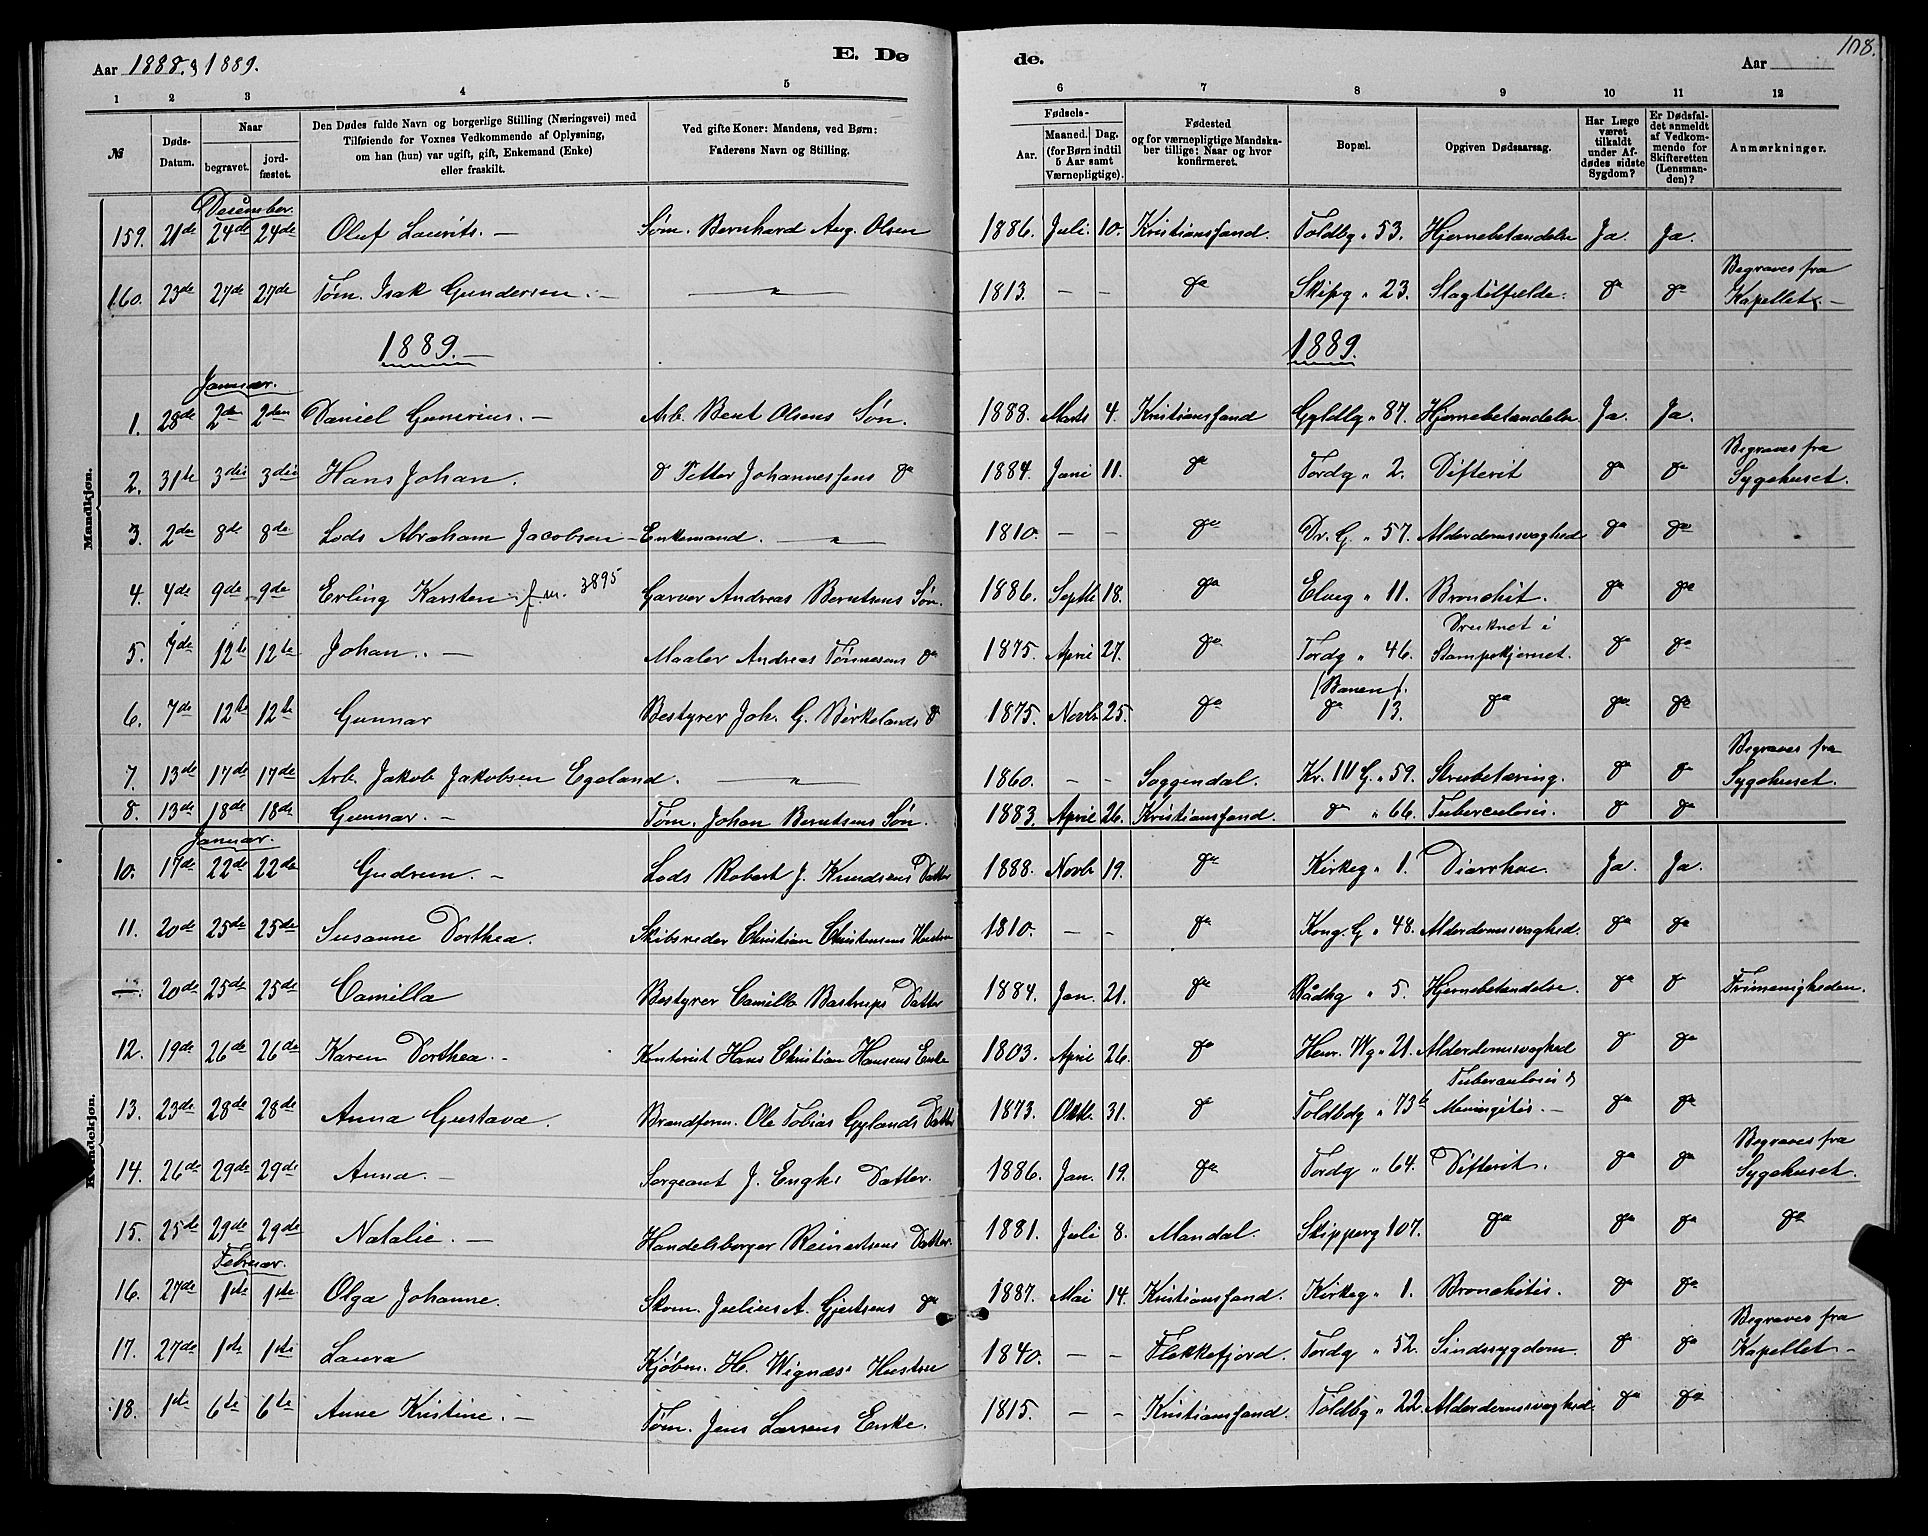 Aar 1888. & 1889.
E. Dø
de.
Aar
108.
1 2 3 4 5 6 7 8 9 10 11 12
№
Døds-Datum.
Naar
begravet.
jord-fæstet.
Den Dødes fulde Navn og borgerlige Stilling (Næringsvei) med
Tilføiende for Voxnes Vedkommende af Oplysning,
om han (hun) var ugift, gift, Enkemand (Enke)
eller fraskilt.
Ved gifte Koner: Mandens, ved Børn:
Faderens Navn og Stilling.
Fødsels-
Aar.
Maaned. Dag.
(for Børn indtil
5 Aar samt
Værnepligtige).
Fødested
og for værnepligtige Mandska-
ber tillige: Naar og hvor
konfirmeret.
Bopæl.
Opgiven Dødsaarsag.
Har Læge
været
tilkaldt
under Af-
dødes sidste
Sygdom?
Er Dødsfal-
det anmeldt
af Vedkom-
mende for
Skifteretten
(Lensman-
den)?
Anmærkninger.
Mandkjøn.
December.
159. 21de 24de 24de Oluf Laurits. — Søm. Bernhard Aug. Olsen 1886. Juli 10. Kristianssand. Toldbg " 53. Hjernebetændelse Ja. Ja.
160. 23de 27de 27de Tøm. Isak Gundersen. — " 1813. — — do Skipg " 23. Slagtilfælde. do do Begraves fra Kapellet. —
1889. — 1889.
Januar.
1. 28de 2den 2den Daniel Gunerius. — Arb. Bent Olsens Søn. 1888. Marts 4. Kristianssand Gyldlg " 87. Hjernebetændelse. Ja. Ja.
2. 31te 3die 3die Hans Johan. do Petter Johannessens do 1884. Juni 11. do Tordg " 2. Difterit do do Begraves fra Sygehuset.
3. 2den 8de 8de Lods Abraham Jacobsen — Enkemand. — " — 1810. — — do Dr. G. " 57. Alderdomssvaghed do do
4. 4de 9de 9de Erling Karsten f.m. 3895 Garver Andreas Berntsens Søn. 1886. Septb 18. do Elveg " 11. Bronchit. do do
5. 7de 12te 12te Johan. — Maaler Andreas Tønnesens do 1875. April 27. do Tordg " 46. Druknet i Stampekjernet. do do
6. 7de 12te 12te Gunnar Bestyrer Joh. G. Birkelands do 1875. Novb 25. do (Banen). do 13. do do do
7. 13de 17de 17de Arb. Jakob Jakobsen Egeland. — " — 1860. — — Soggendal. Kr. IV G. " 59. Strubetæring. do do Begraves fra Sygehuset.
8. 13de 18de 18de Gunnar. — Tøm. Johan Berntsens Søn. 1883. April 26. Kristianssand. do " 66. Tuberculosis. do do
Kvindekjøn.
Januar.
10. 17de 22de 22de Gudrun. — Lods Robert J. Knudsens Datter 1888. Novb 19. do Kirkeg " 1. Diarrhoe. Ja. Ja.
11. 20de 25de 25de Susanne Dorthea. Skibsreder Christian Christensens Hustru 1810. — — do Kong. G " 48. Alderdomssvaghed. do do
20de 25de 25de Camilla Bestyrer Camillo Bastrups Datter 1884. Jan. 21. do Rådhg " 5. Hjernebetændelse. do do Frimenigheden.
12. 19de 26de 26de Karen Dorthea. — Kontorist Hans Christian Hansens Enke 1803. April 26. do Henr. Wg " 21. Alderdomssvaghed do do
13. 23de 28de 28de Anna Gustava. Brandform. Ole Tobias Gylands Datter 1873. Oktb. 31. do Toldbdg " 73b Tuberculosis & Meningitis. — do do
14. 26de 29de 29de Anna. — Sergeant J. Enghs Datter. 1886. Jan. 19. do Tordg " 64. Difterit. do do Begraves fra Sygehuset.
15. 25de 29de 29de Natalie. — Handelsborger Reinertsens Datter. 1881. Juli 8. Mandal. Skipperg 107. do do do do
Februar.
16. 27de 1ste 1ste Olga Johanne. Skom. Julius A. Gjertsens do 1887. Mai 14. Kristianssand. Kirkeg " 1. Bronchitis. do do
17. 27de 1ste 1ste Laura Kjøbm. H. Wignæs' Hustru 1840. — — Flekkefjord. Tordg " 52. Sindssygdom. do do Begraves fra Kapellet —
18. 1ste 6te 6te Anne Kristine. — Tøm. Jens Larsens Enke. 1815. — — Kristianssand. Toldbg " 22. Alderdomssvaghed. do do